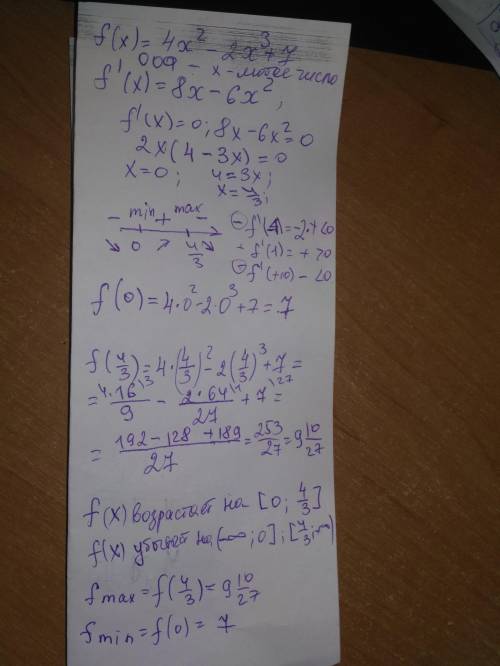 f(x) = 4x² - 2x³ + 7
ООФ - x - любое число
f'(x) = 8x - 6x²;
f'(x) = 0; 8x - 6x² = 0
2x(4 - 3x) = 0
x = 0; 4 = 3x;
x = 4/3;
- min + max -
↘ 0 ↗ 4/3 ↘
- f'(-1) = -2·7 < 0
+ f'(1) = + > 0
- f'(+10) - < 0
f(0) = 4·0² - 2·0³ + 7 = 7
f(4/3) = 4·(4/3)² - 2(4/3)³ + 7 =
= 4·16\3/9 - 2·64\1/27 + 7\27 =
= 192 - 128 + 189/27 = 253/27 = 9 10/27
f(x) возрастает на [0; 4/3]
f(x) убывает на (-∞; 0]; [4/3; ∞)
fmax = f(4/3) = 9 10/27
fmin = f(0) = 7